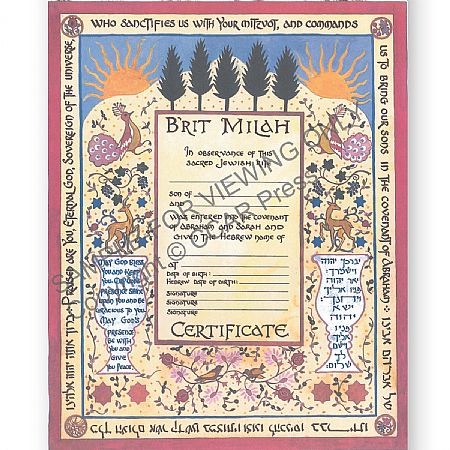 Who sanctifies us with Your mitzvot, and commands
us to bring our sons in the covenant of Abraham
Praised are You, Eternal God, Sovereign of the universe,
Brit Milah
In observance of this
sacred Jewish rite
son of
and
was entered into the covenant
of Abraham and Sarah and
given the Hebrew name of
at
Date of birth:
Hebrew date of birth:
Signature
Signature
Signature
Certificate
May God bless
you and keep
you. May God's
presence shine
upon you and be
gracious to you.
May God's
presence
be with
you and
give
you peace.
יברכך יהוה
וישמרך:
יאר יהוה
פניו אליך
ויחנך:
ישא
יהוה
פניו
אליך
וישם
לך
שלום:
SAMPLE FOR VIEWING ONLY
Copyright © CCAR Press